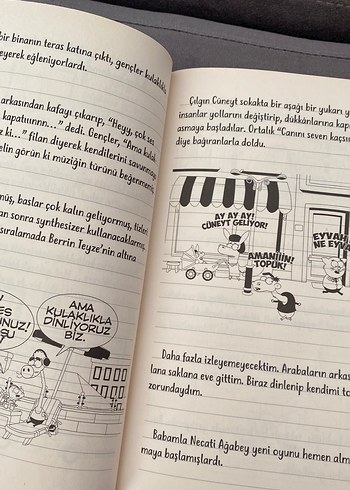 bir binanın teras katına çıktı, gençler kulaklık
eyerek eğleniyorlardı.
arkasından kafayı çıkarıp, "Heyy, çok ses
kapatıınnn..." dedi. Gençler, "Ama kulak
z ki..." filan diyerek kendilerini savunmaya
elin görün ki müziğin türünü beğenmemiş
müş, baslar çok kalın geliyormuş, tizleri
an sonra synthesizer kullanacaklarmış.
sıralamada Berrin Teyze'nin altına
ES
NUZ!
ŞU
AMA
KULAKLIKLA
DİNLİYORUZ
BİZ.
Çılgın Cüneyt sokakta bir aşağı bir yukarı y
insanlar yollarını değiştirip, dükkânlarına kap
asmaya başladılar. Ortalık "Canını seven kaçsın
diye bağıranlarla doldu.
AY AY AY!
CÜNEYT GELİYOR!
AMANIIIN!
TOPUK!
EYVAH
NE EYVA
Daha fazla izleyemeyecektim. Arabaların arkas
lana saklana eve gittim. Biraz dinlenip kendimi to
zorundaydım.
Babamla Necati Ağabey yeni oyunu hemen alm
maya başlamışlardı.